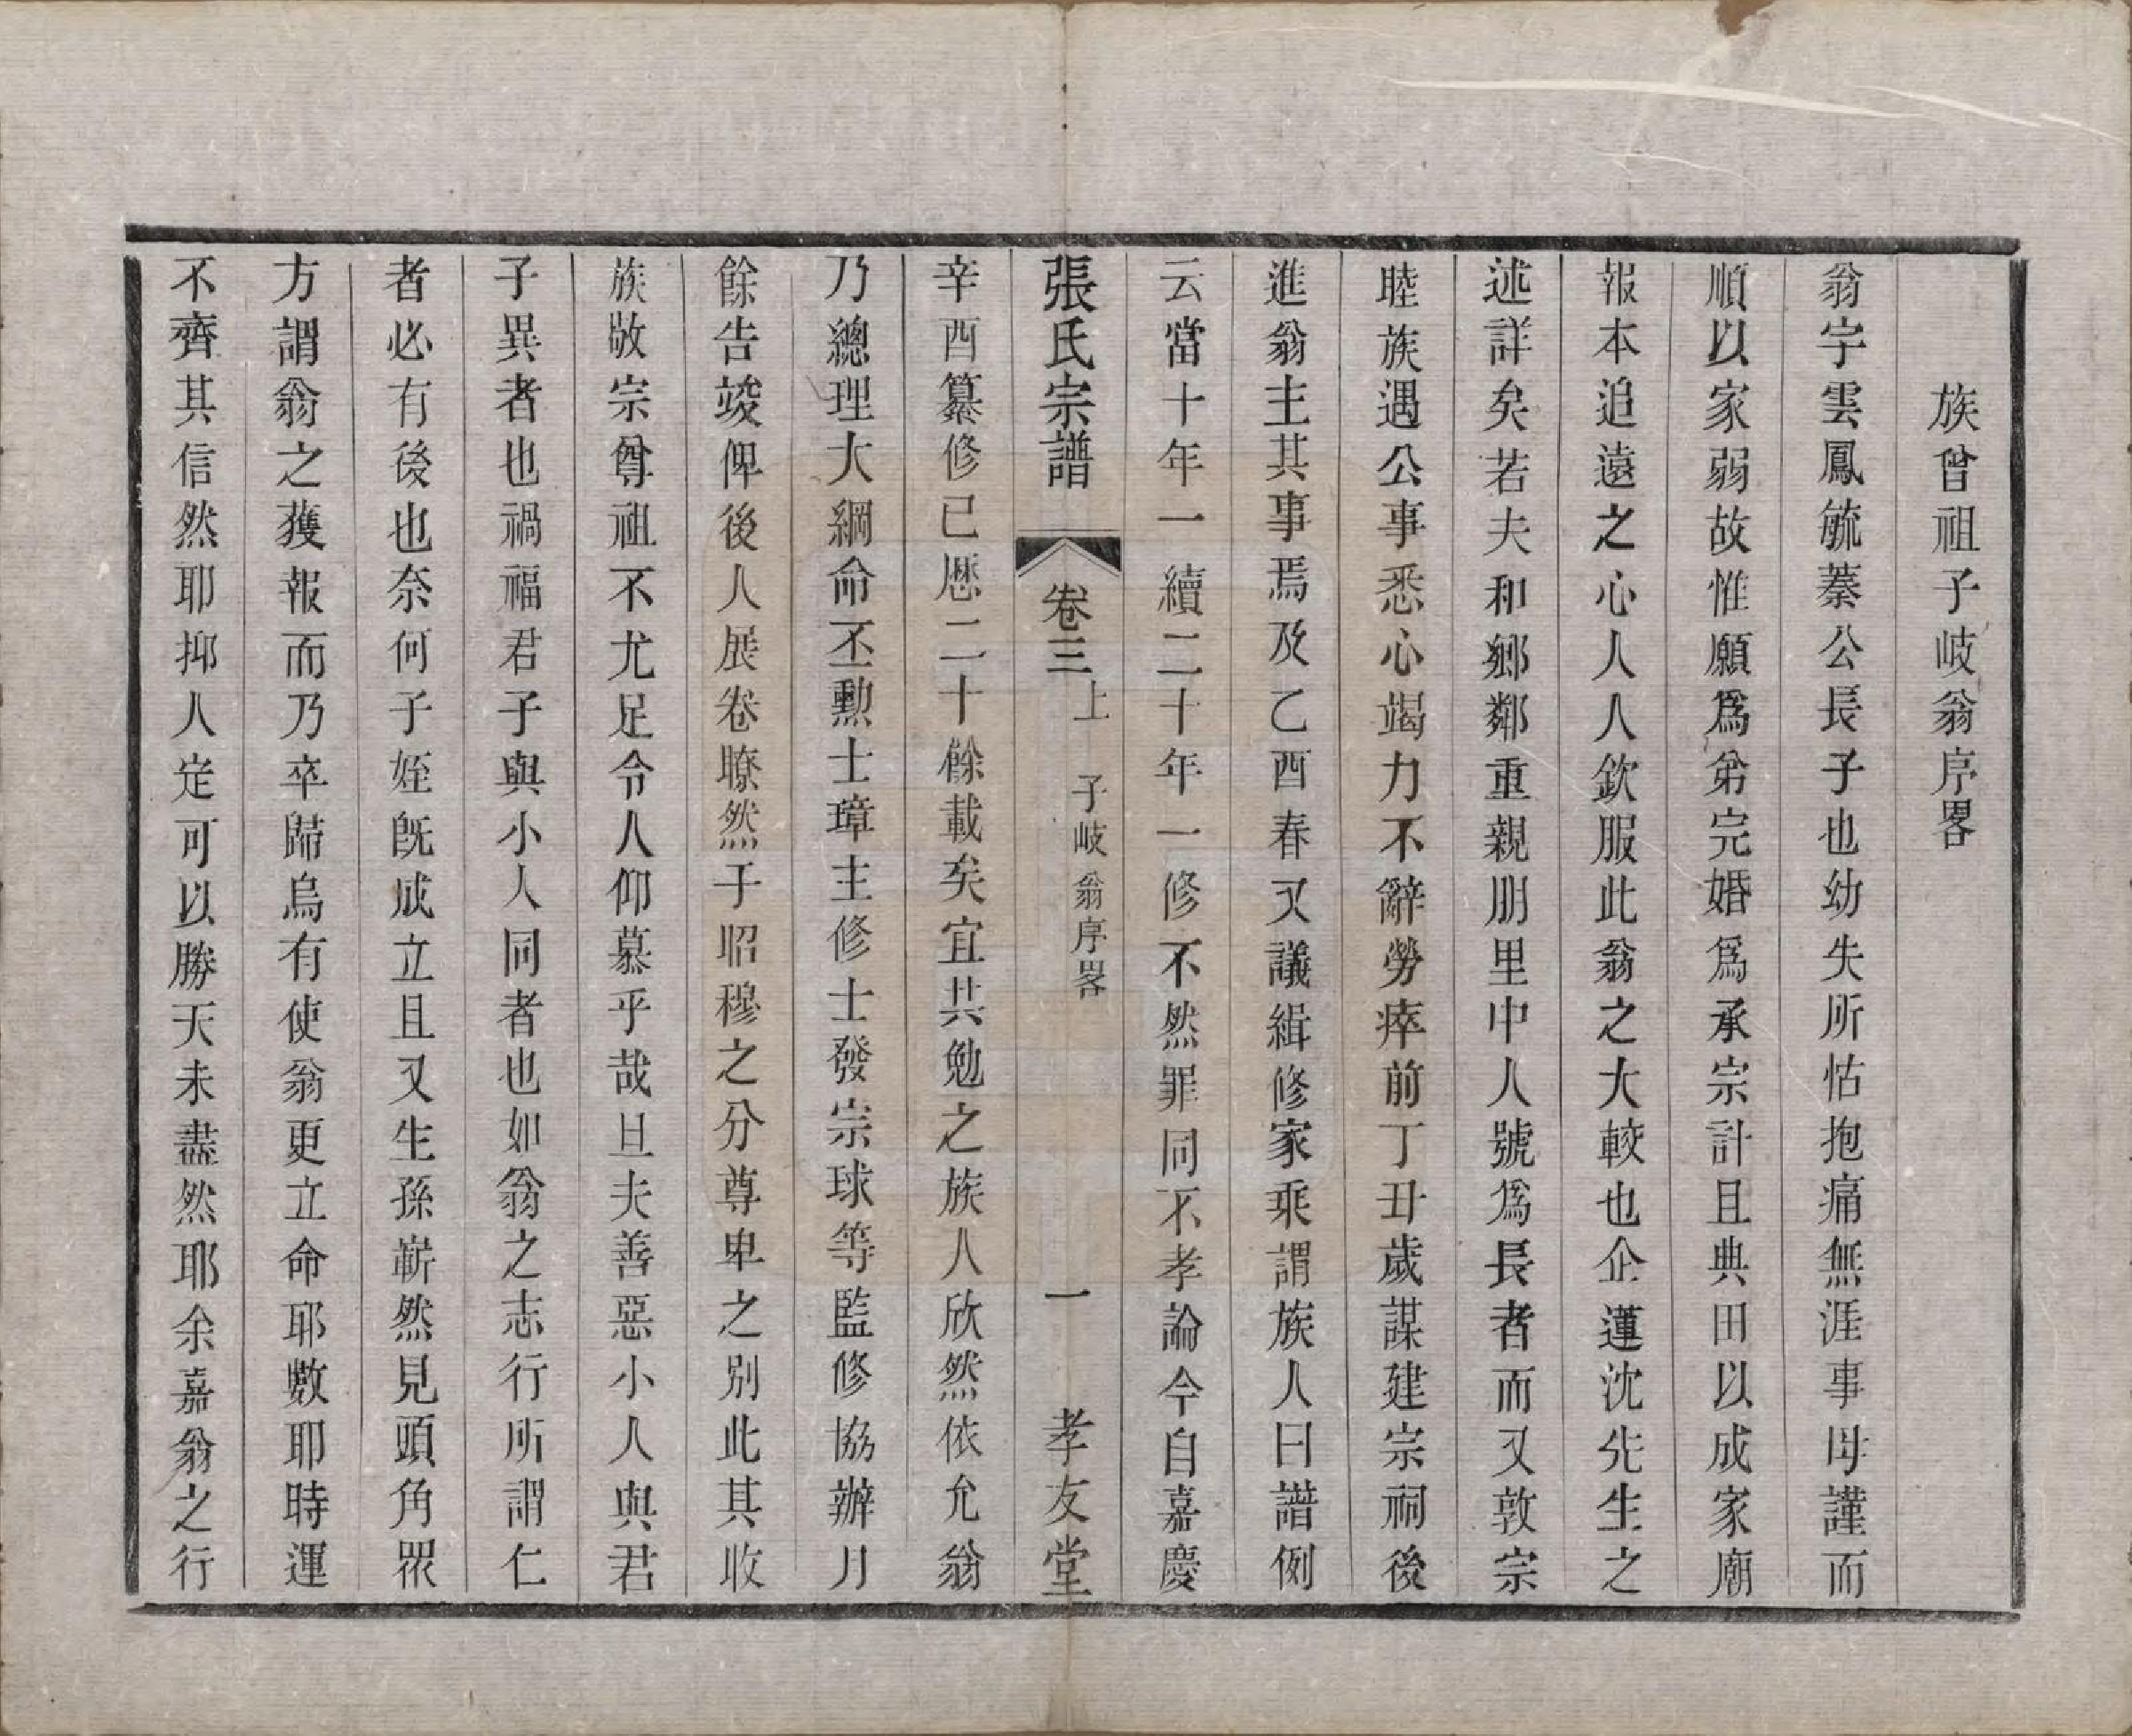 族曾祖子岐翁序畧
翁字雲鳳毓蓁公長子也幼失所怙抱痛無涯事母謹而
順以家弱故惟願爲弟完婚爲承宗計且典田以成家廟
報本追遠之心人人欽服此翁之大較也企蓮沈先生之
述詳矣若夫和鄉鄰重親朋里中人號爲長者而又敦宗
睦族遇公事悉心竭力不辭勞瘁前丁丑歲謀建宗祠後
進翁主其事焉及乙酉春又議緝修家乘謂族人曰譜例
云當十年一續二十年一修不然罪同不孝論今自嘉慶
張氏宗譜 卷三上 子岐翁序畧 一 孝友堂
辛酉纂修已歷二十餘載矣宜共勉之族人欣然依允翁
乃總理大綱命丕勲士璋主修士發宗球等監修協辦月
餘告竣俾後人展卷瞭然于昭穆之分尊卑之别此其收
族敬宗尊祖不尤足令人仰慕乎哉且夫善惡小人與君
子異者也禍福君子與小人同者也如翁之志行所謂仁
者必有後也奈何子姪旣成立且又生孫嶄然見頭角眾
方謂翁之獲報而乃卒歸烏有使翁更立命耶數耶時運
不齊其信然耶抑人定可以勝天未盡然耶余嘉翁之行